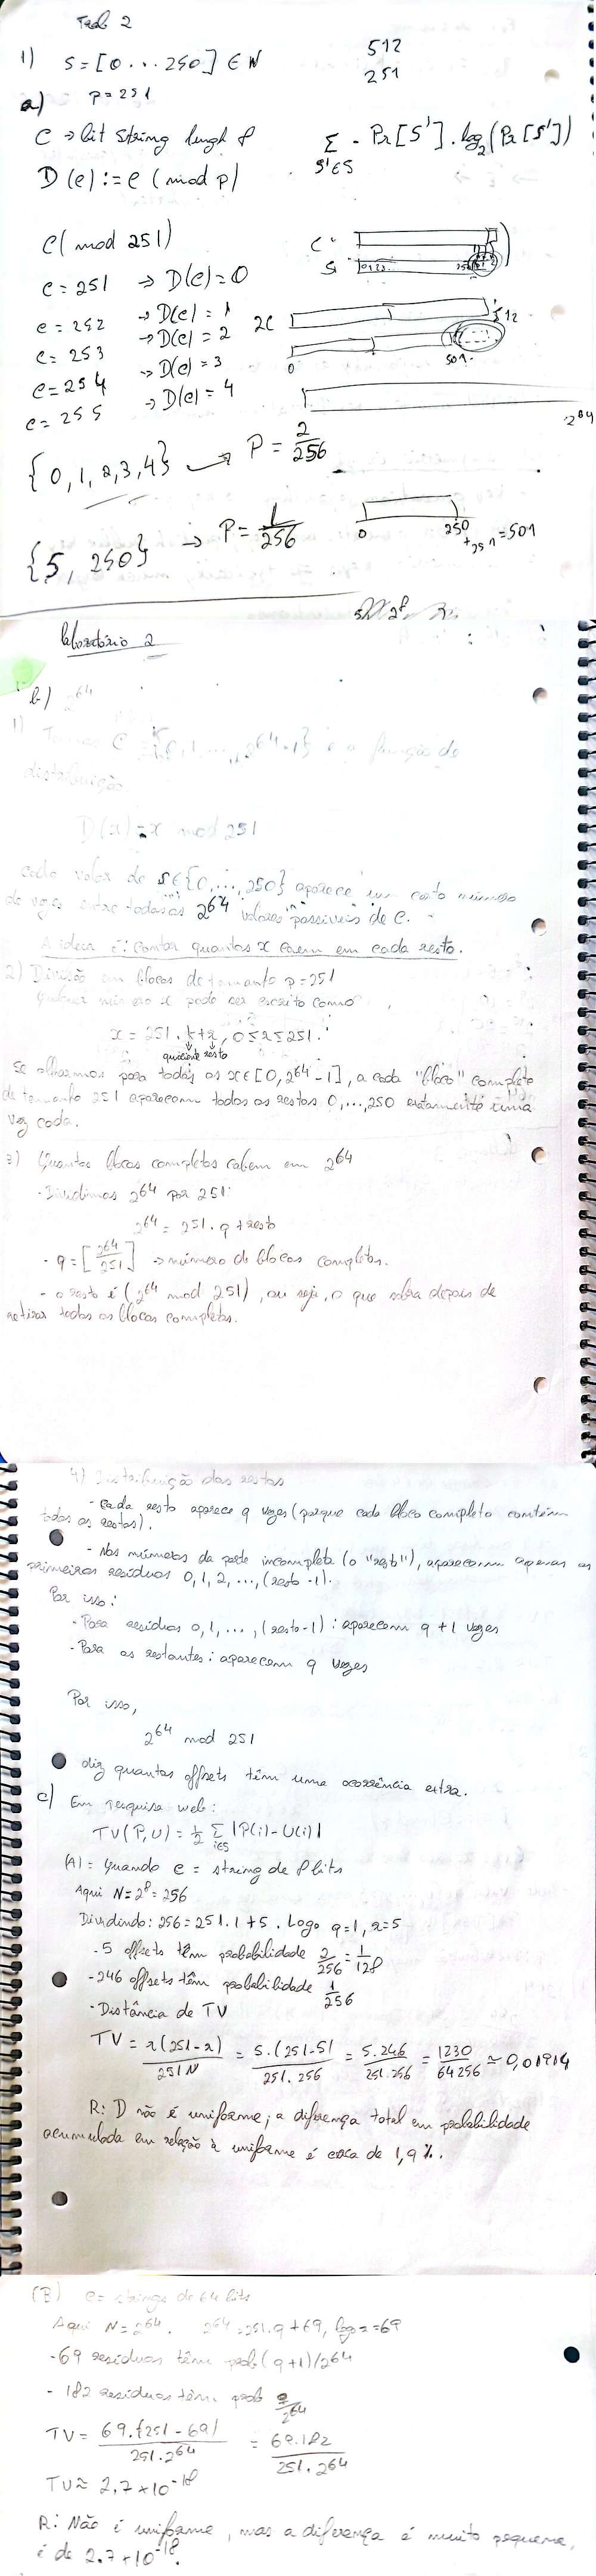 Trab 2
1) S = [0 ... 250] ∈ N
512
251
a) P = 251
C → bit string lengh 8
Σ - Pr[S'] . log₂(Pr[S'])
S'∈S
D(c) := c (mod p)
C(mod 251)
c = 251 → D(c) = 0
c = 252 → D(c) = 1
c = 253 → D(c) = 2
c = 254 → D(c) = 3
c = 255 → D(c) = 4
C
S
2C
512
0
501
2^64
{0,1,2,3,4} → P = 2/256
{5, 250} → P = 1/256
0 250 +251 = 501
Laboratório 2
b) 2^64
1) Temos C = {0,1,...,2^64-1} e a função de
distribuição
D(x) = x mod 251
cada valor de S∈{0,...,250} aparece um certo número
de vezes entre todos os 2^64 valores possíveis de C.
A ideia é: contar quantos x caem em cada resto.
2) Divisão em blocos de tamanho p = 251
Qualquer número x pode ser escrito como
x = 251.k + r, 0≤r≤251.
quociente resto
Se olharmos para todos os x∈[0, 2^64-1], a cada "bloco" completo
de tamanho 251 aparecem todos os restos 0,...,250 exatamente uma
vez cada.
3) Quantos blocos completos cabem em 2^64
- Dividimos 2^64 por 251:
2^64 = 251.q + resto
- q = [2^64/251] → número de blocos completos.
- o resto é (2^64 mod 251), ou seja, o que sobra depois de
retirar todos os blocos completos.
4) Distribuição dos restos
- Cada resto aparece q vezes (porque cada bloco completo contém
todos os restos).
- Nos números da parte incompleta (o "resto"), aparecem apenas os
primeiros resíduos 0, 1, 2, ..., (resto-1).
Por isso:
- Para resíduos 0,1,...,(resto-1): aparecem q+1 vezes
- Para os restantes: aparecem q vezes
Por isso,
2^64 mod 251
diz quantos offsets têm uma ocorrência extra.
c) Em pesquisa web:
TV(P,U) = 1/2 Σ |P(i)-U(i)|
i∈S
(A) = Quando c = string de 8 bits
Aqui N = 2^8 = 256
Dividindo: 256 = 251.1 + 5. Logo q=1, r=5
- 5 offsets têm probabilidade 2/256 = 1/128
- 246 offsets têm probabilidade 1/256
- Distância de TV
TV = r(251-r)/251N = 5.(251-5)/251.256 = 5.246/251.256 = 1230/64256 ≃ 0,01914
R: D não é uniforme; a diferença total em probabilidade
acumulada em relação à uniforme é cerca de 1,9%.
(B) c = strings de 64 bits
Aqui N = 2^64. 2^64 = 251.q + 69, logo r = 69
- 69 resíduos têm prob (q+1)/2^64
- 182 resíduos têm prob q/2^64
TV = 69.(251-69)/251.2^64 = 69.182/251.2^64
TV ≈ 2,7 × 10^-18
R: Não é uniforme, mas a diferença é muito pequena,
é de 2.7×10^-18.